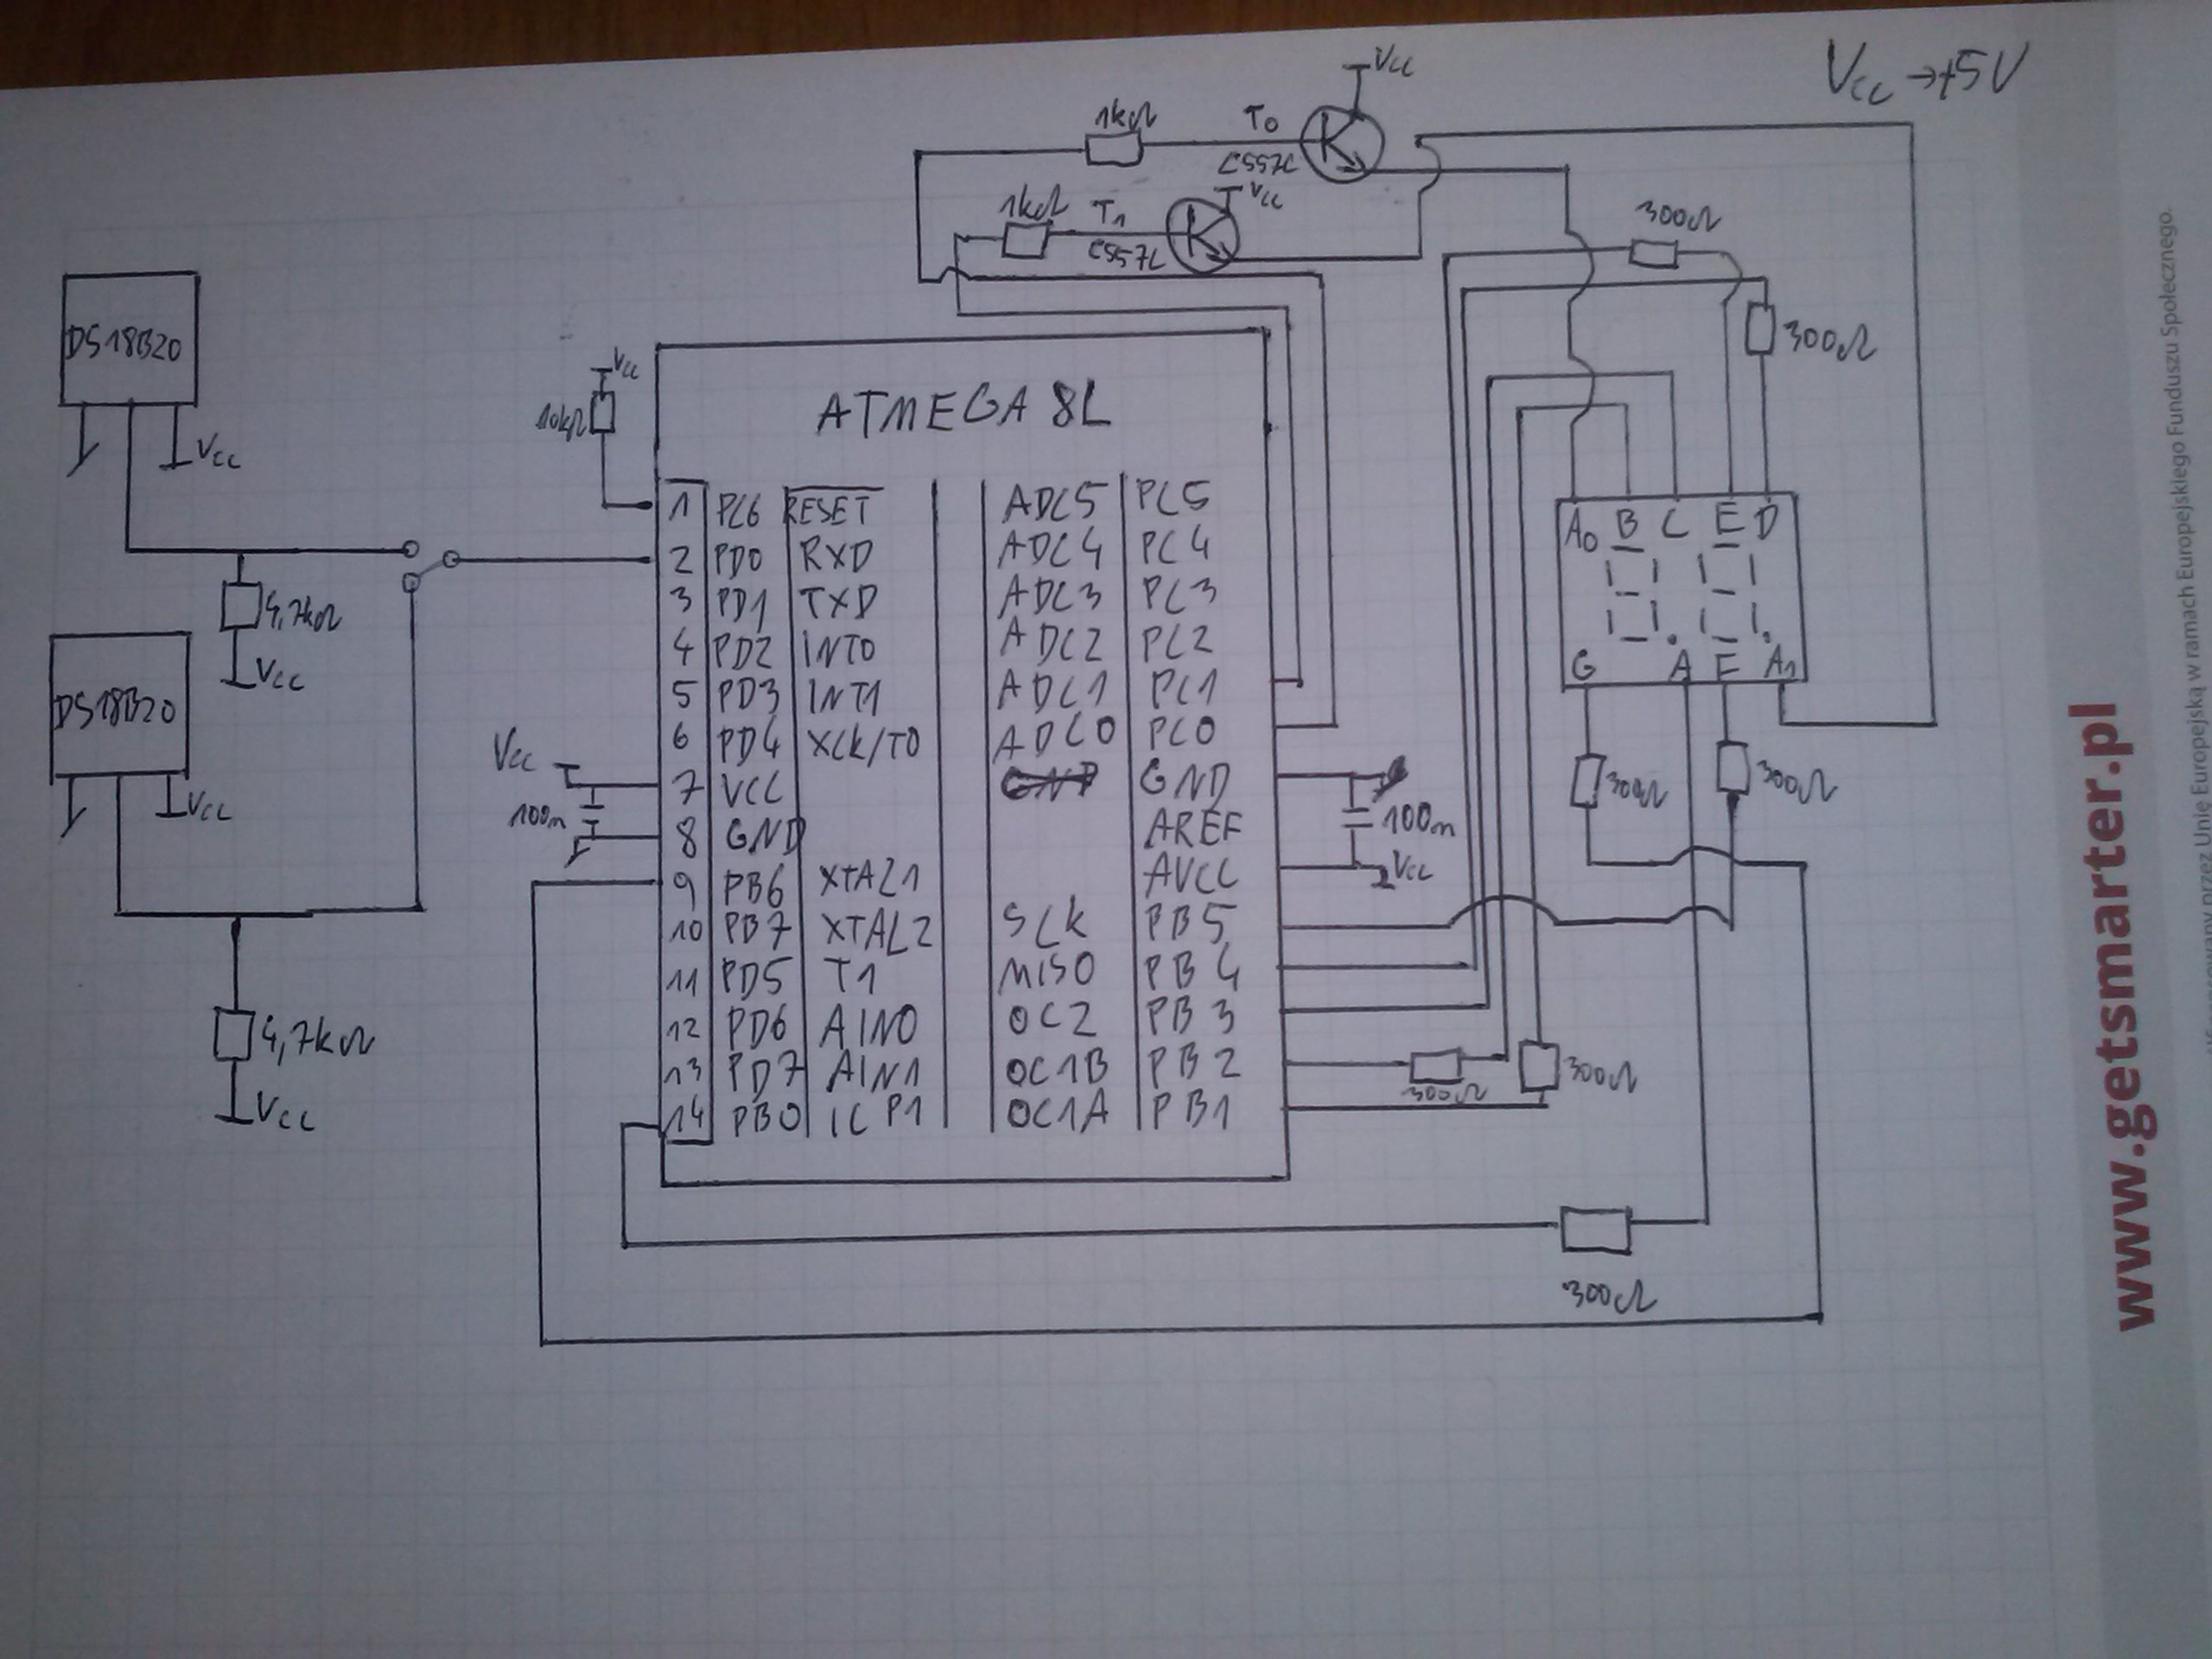 Vcc → +5V
Vcc
1kΩ
T0
C557C
Vcc
1kΩ
T1
C557C
300Ω
300Ω
DS18B20
Vcc
4,7kΩ
Vcc
DS18B20
Vcc
4,7kΩ
Vcc
Vcc
10kΩ
ATMEGA 8L
1 PC6 RESET ADC5 PC5
2 PD0 RXD ADC4 PC4
3 PD1 TXD ADC3 PC3
4 PD2 INT0 ADC2 PC2
5 PD3 INT1 ADC1 PC1
6 PD4 XCK/T0 ADC0 PC0
7 VCC GND
8 GND AREF
9 PB6 XTAL1 AVCC
10 PB7 XTAL2 SCK PB5
11 PD5 T1 MISO PB4
12 PD6 AIN0 OC2 PB3
13 PD7 AIN1 OC1B PB2
14 PB0 ICP1 OC1A PB1
Vcc
100n
100n
Vcc
A0 B C E D
G A F A1
300Ω
300Ω
300Ω
300Ω
300Ω
www.getsmarter.pl
przez Unię Europejską w ramach Europejskiego Funduszu Społecznego.